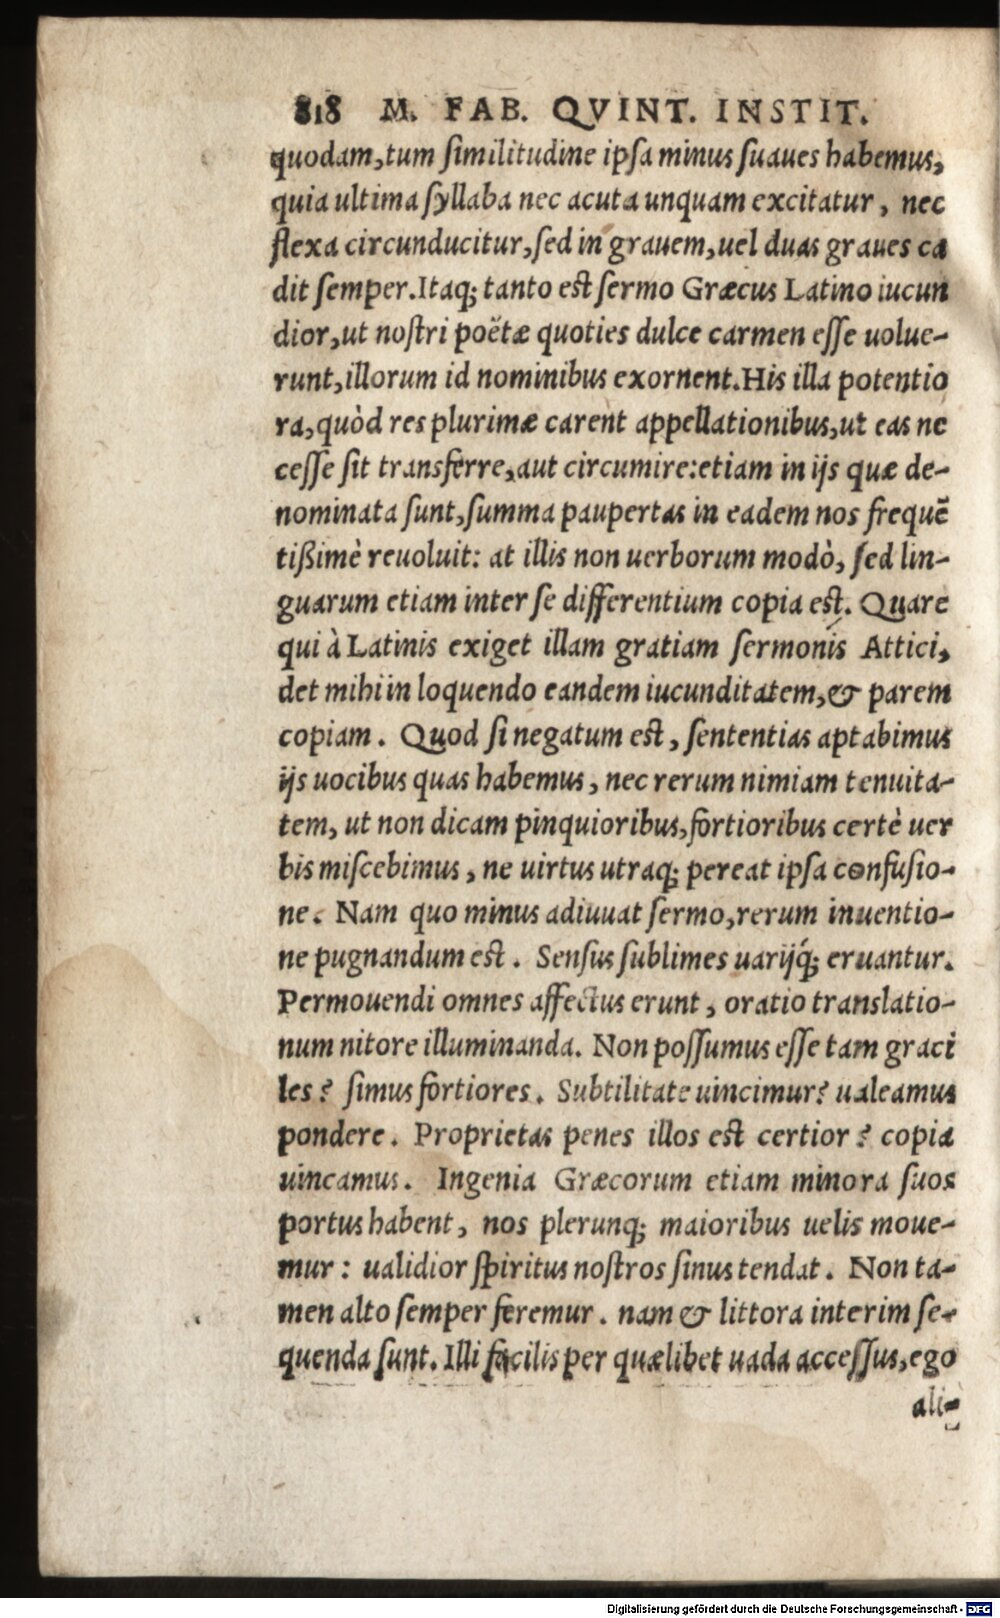 818 M. FAB. QVINT. INSTIT.
quodam,tum ſimilitudine ipſa minus ſuaues habemus,
quia ultima ſyllaba nec acuta unquam excitatur, nec
flexa circunducitur,ſed in grauem,uel duas graues ca
dit ſemper.Itaq; tanto est ſermo Græcus Latino iucun
dior,ut noſtri poëtæ quoties dulce carmen eſſe uolue-
runt,illorum id nominibus exornent.His illa potentio
ra,quòd res plurimæ carent appellationibus,ut eas ne
ceſſe ſit transferre,aut circumire:etiam in ijs quæ de-
nominata ſunt,ſumma paupertas in eadem nos frequē
tißimè reuoluit: at illis non uerborum modò, ſed lin-
guarum etiam inter ſe differentium copia est. Quare
qui à Latinis exiget illam gratiam ſermonis Attici,
det mihi in loquendo eandem iucunditatem,& parem
copiam. Quod ſi negatum est, ſententias aptabimus
ijs uocibus quas habemus, nec rerum nimiam tenuita-
tem, ut non dicam pinquioribus,fortioribus certè uer
bis miſcebimus, ne uirtus utraq; pereat ipſa confuſio-
ne. Nam quo minus adiuuat ſermo,rerum inuentio-
ne pugnandum est. Senſus ſublimes uarijq́; eruantur.
Permouendi omnes affectus erunt, oratio translatio-
num nitore illuminanda. Non poſſumus eſſe tam graci
les? ſimus fortiores. Subtilitate uincimur? ualeamus
pondere. Proprietas penes illos est certior? copia
uincamus. Ingenia Græcorum etiam minora ſuos
portus habent, nos plerunq; maioribus uelis moue-
mur: ualidior ſpiritus noſtros ſinus tendat. Non ta-
men alto ſemper feremur. nam & littora interim ſe-
quenda ſunt. Illi facilis per quælibet uada acceſſus,ego
ali-
Digitalisierung gefördert durch die Deutsche Forschungsgemeinschaft - DFG